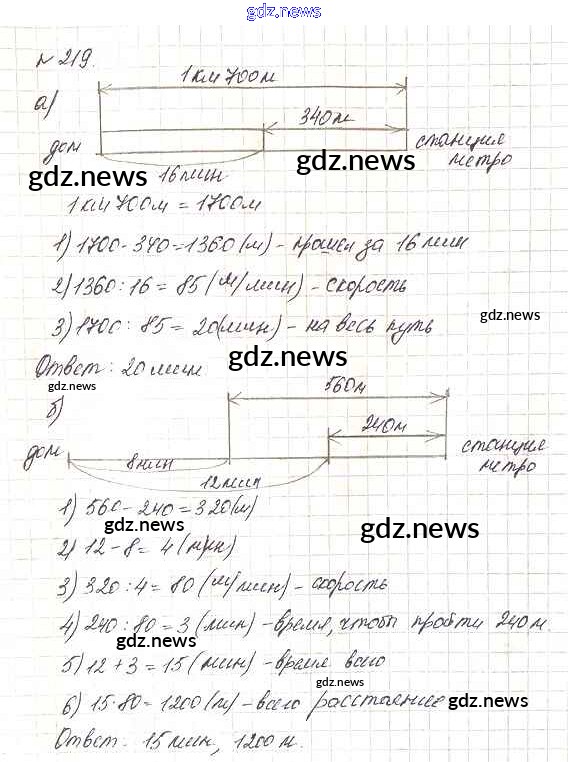 gdz.news
№ 219.
1 км 700 м
а)
340 м
дом
станция
метро
gdz.news
gdz.news
16 мин
1 км 700 м = 1700 м
1) 1700 - 340 = 1360 (м) - прошел за 16 мин
2) 1360 : 16 = 85 (м/мин) - скорость
gdz.news
3) 1700 : 85 = 20 (мин) - на весь путь
gdz.news
Ответ: 20 мин
gdz.news
560 м
б)
240 м
дом
станция
метро
8 мин
12 мин
1) 560 - 240 = 320 (м)
gdz.news
gdz.news
2) 12 - 8 = 4 (мин)
3) 320 : 4 = 80 (м/мин) - скорость
4) 240 : 80 = 3 (мин) - время, чтобы пройти 240 м.
gdz.news
5) 12 + 3 = 15 (мин) - время всего
gdz.news
6) 15 · 80 = 1200 (м) - всего расстояние
gdz.news
Ответ: 15 мин, 1200 м.